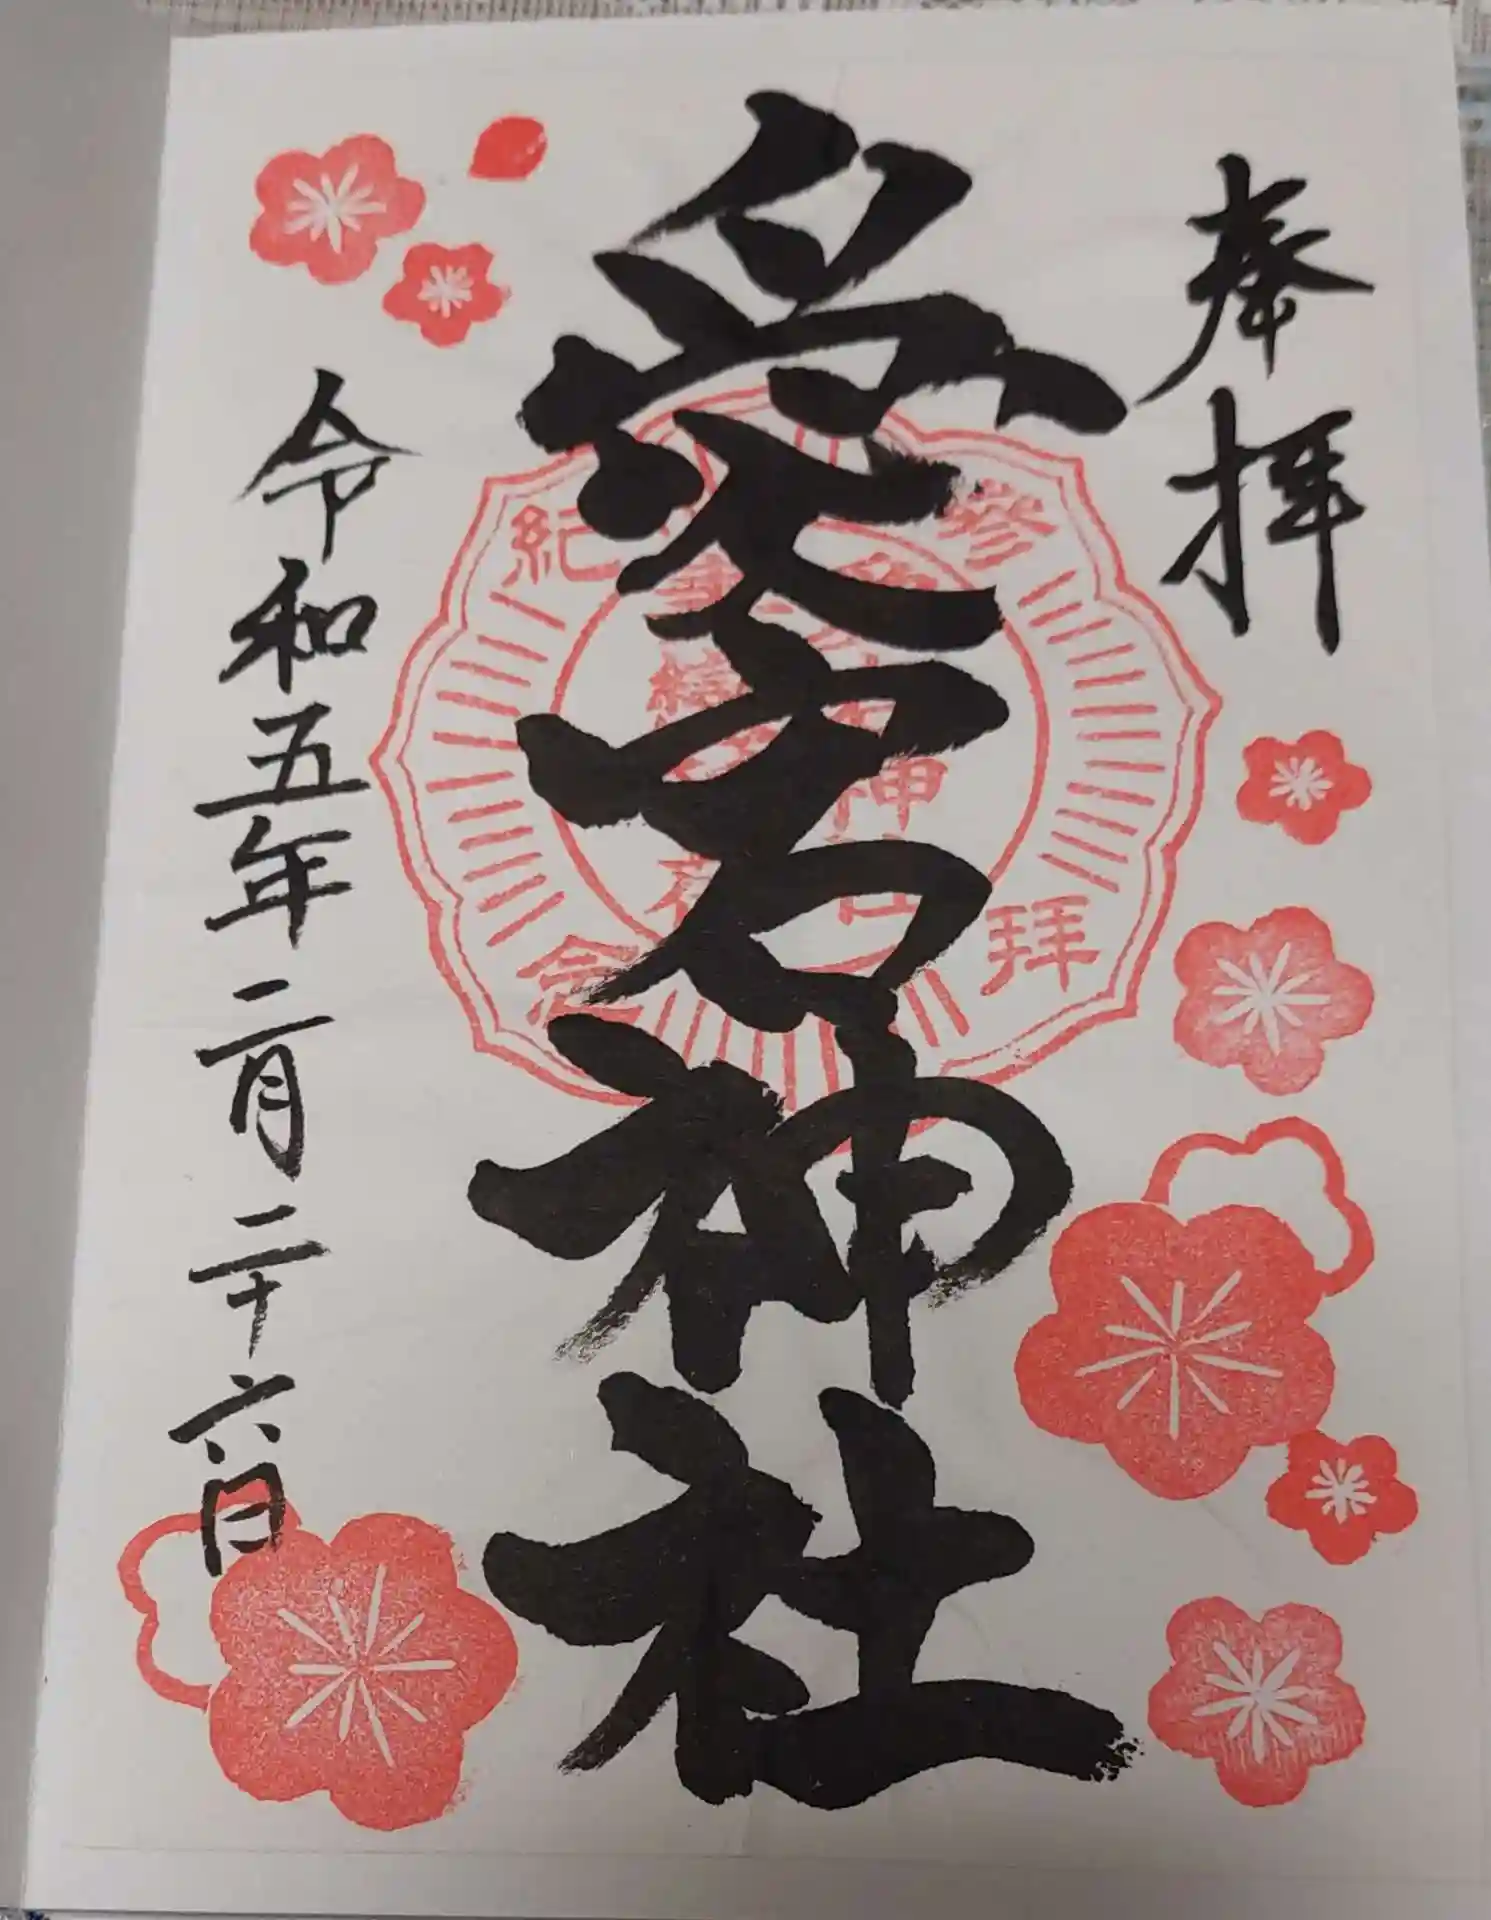 奉拝
愛宕神社
令和五年二月二十六日
参拝
紀念